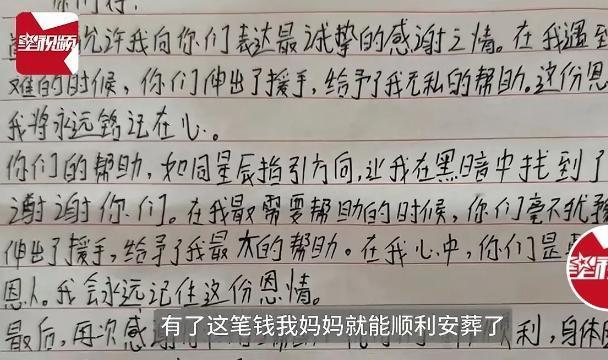 星视频
允许我向你们表达最诚挚的感谢之情。在我遇到
难的时候，你们伸出了援手，给予了我无私的帮助。这份恩
我将永远铭记在心。
你们的帮助，如同星辰指引方向，让我在黑暗中找到了
谢谢你们。在我最需要帮助的时候，你们毫不犹豫
伸出了援手，给予了我最大的帮助。在我心中，你们是
恩人。我会永远记住这份恩情。
有了这笔钱我妈妈就能顺利安葬了
最后，再次感
利，身体